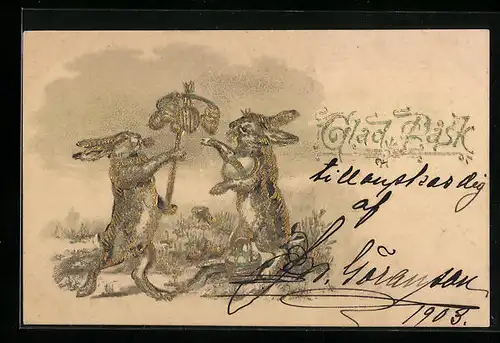 Glad Påsk
tillönskas dig
af
Göranson
1903.